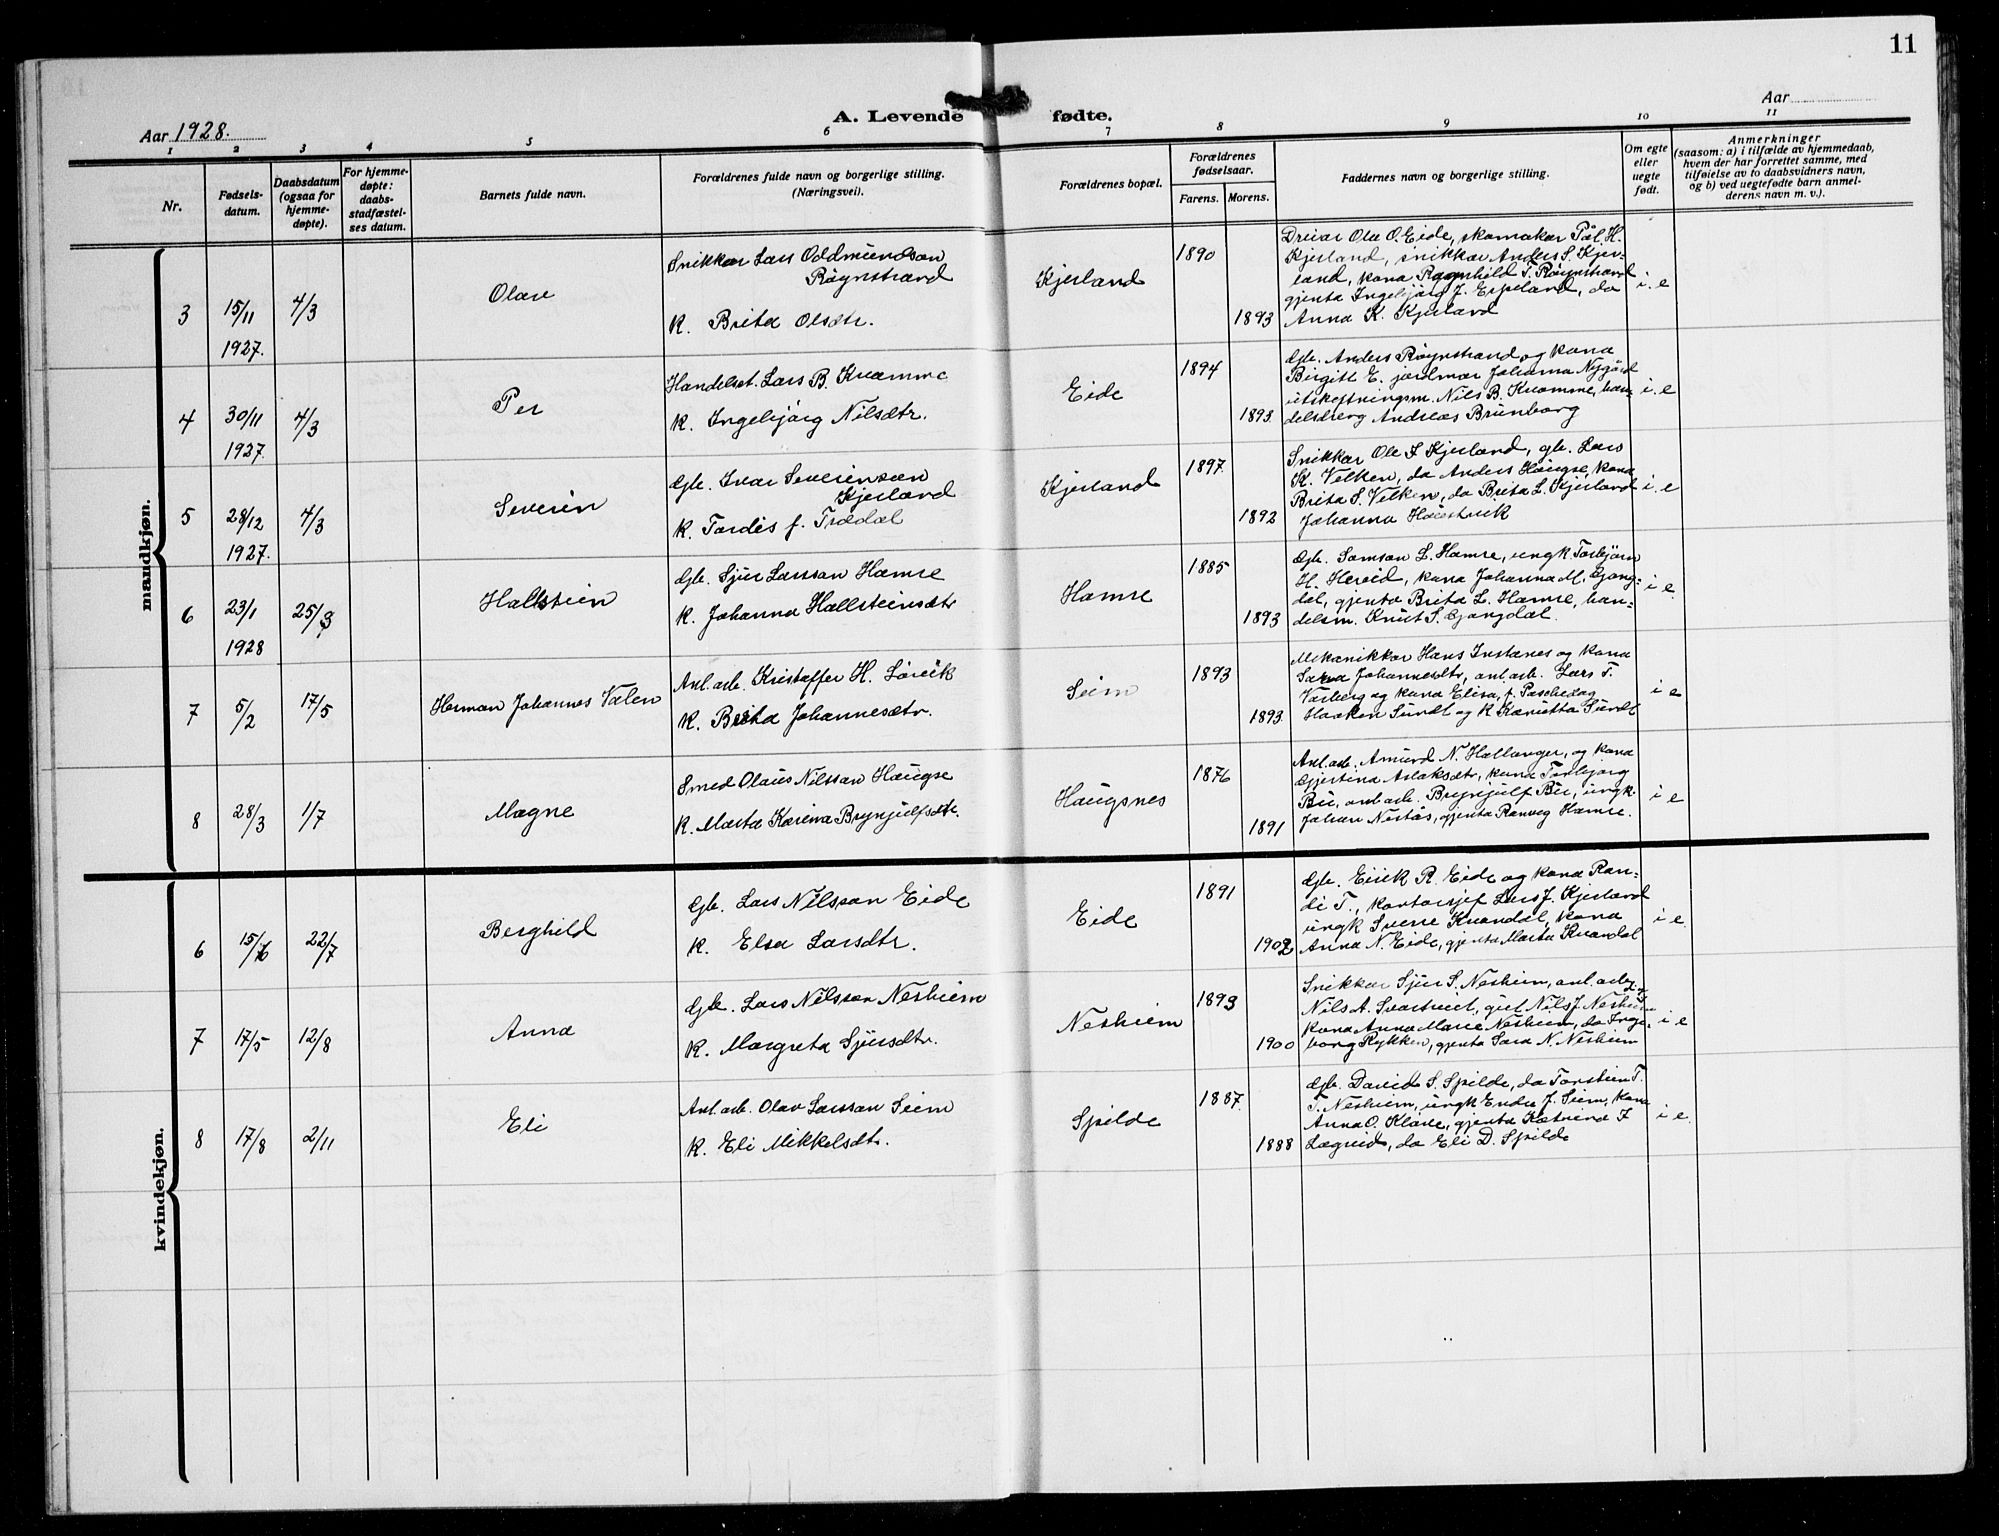 11
Aar 1928.
A. Levende fødte.
Aar
1 2 3 4 5 6 7 8 9 10 11
Nr.
Fødsels-
datum.
Daabsdatum
(ogsaa for
hjemme-
døpte).
For hjemme-
døpte:
daabs-
stadfæstel-
ses datum.
Barnets fulde navn.
Forældrenes fulde navn og borgerlige stilling.
(Næringsvei).
Forældrenes bopæl.
Forældrenes
fødselsaar.
Farens. Morens.
Faddernes navn og borgerlige stilling.
Om egte
eller
uegte
født.
Anmerkninger
(saasom: a) i tilfælde av hjemmedaab,
hvem der har forrettet samme, med
tilføielse av to daabsvidners navn,
og b) ved uegtefødte barn anmel-
derens navn m. v.).
mandkjøn.
3 15/11 1927. 4/3
Olav
Snikkar Lars Oddmundson
Røynstrand
K. Brita Olsdtr.
Kjerland
1890
1893
Dreiar Ola O. Eide, skomakar Pål H.
Kjerland, snikkar Anders S. Kjer-
land, kona Ragnhild T. Røynstrand
gjenta Ingebjørg J. Espeland, do
Anna K. Kjerland
i. e
4 30/11 1927. 4/3
Per
Handelsst. Lars B. Kvamme
K. Ingebjørg Nilsdtr.
Eide
1894
1893.
Gb. Anders Røynstrand og kona
Birgitt E. jordmor Johanna Nygård
utskiftningsm. Nils B. Kvamme, han-
delsberg Andreas Brunborg
i. e
5 28/12 1927. 4/3
Severin
Gb. Ivar Severinson
Kjerland
K. Tordis f. Trædal
Kjerland
1897.
1892
Snikkar Ole S Kjerland, gb. Lars
K. Velken, do Anders Haugse, kona
Brita S. Velken, do Brita L. Kjerland
Johanna
i e
6 23/1 1928 25/3
Hallstein
Gb. Sjur Larsson Hamre
K. Johanna Hallsteinsdtr
Hamre
1885
1893
Gb. Samson L. Hamre, ungk Torbjørn
H. Hereid, kona Johanna M. Gjøng-
dal, gjenta Brita L. Hamre, han-
delsm. Knut S. Gjøngdal.
i e
7 5/2 17/5
Herman Johannes Valen
Anl. arb. Kristoffer H. Sørvik
K. Brita Johannesdtr.
Seim
1893
1893.
Mekanikkar Hans Instanes og kona
Sara Johannesdtr, anl. arb. Lars T.
Varberg og kona Elisa, f. Paschedag
Haaken Sundt og K Sundt
i e
8 28/3 1/7
Magne
Smed Olaus Nilsson Haugse
K. Marta Karina Brynjulfsdtr.
Haugsnes
1876
1891
Anl. arb. Amund N. Hallanger, og kona
Gjertina Aslaksdtr, kona Torbjørg
Bu, anl. arb. Brynjulf Bu, ungk.
Johan Nestås, gjenta Ranveg Hamre.
i e
kvindekjøn.
6 15/6 22/7
Berghild
Gb. Lars Nilsson Eide
K. Elsa Larsdtr.
Eide
1891
1902
Gb. Eirik R. Eide og kona Ran-
di T., kontorsjef Lars J. Kjerland
ungk Sverre Kvandal, kona
Anna N. Eide, gjenta Marta Kvandal
i e.
7 17/5 12/8
Anna
Gb. Lars Nilsson Nesheim
K. Margreta Sjursdtr.
Nesheim
1893
1900
Snikkar Sjur S. Nesheim, anl. arb.
Nils A. Svartveit, gut Nils J. Nesheim
kona Anna Marie Nesheim, do Inge-
borg Rykken, gjenta Sara N. Nesheim
i e
8 17/8 2/11
Eli
Anl. arb. Olav Larsson Seim
K. Eli Mikkelsdtr.
Spilde
1887.
1888
Gb. David S. Spilde, do Torstein T.
T. Nesheim, ungk Endre J. Seim, kona
Anna O. Kløve, gjenta Katrina I
Lægreid, do Eli D. Spilde
i e.